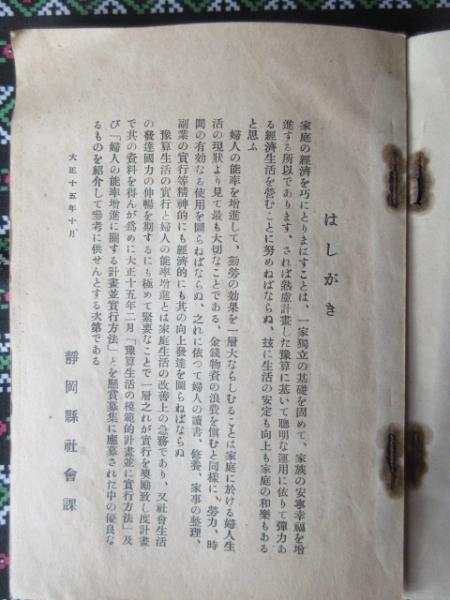 はしがき
家庭の經濟を巧にとりまはすことは、一家獨立の基礎を固めて、家族の安寧幸福を增
進する所以であります、されば熟慮計畫した豫算に基いて聰明な運用に依りて彈力あ
る經濟生活を營むことに努めねばならぬ、玆に生活の安定も向上も家庭の和樂もある
と思ふ
婦人の能率を增進して、勤勞の効果を一層大ならしむることは家庭に於ける婦人生
活の現狀より見て最も大切なことである、金錢物資の浪費を愼むと同樣に、勞力、時
間の有効なる使用を圖らねばならぬ、之れに依つて婦人の讀書、修養、家事の整理、
副業の實行等精神的にも經濟的にも其の向上發達を圖らねばならぬ
豫算生活の實行と婦人の能率增進とは家庭生活の改善上の急務であり、又社會生活
の發達國力の伸暢を期するにも極めて緊要なことで一層之れが實行を奬勵致し度計畫
で其の資料を得んが爲めに大正十五年二月「豫算生活の模範的計畫並に實行方法」及
び「婦人の能率增進に關する計畫並實行方法」とを懸賞募集に應募された中の優良な
るものを紹介して參考に供せんとする次第である
大正十五年十月
靜岡縣社會課